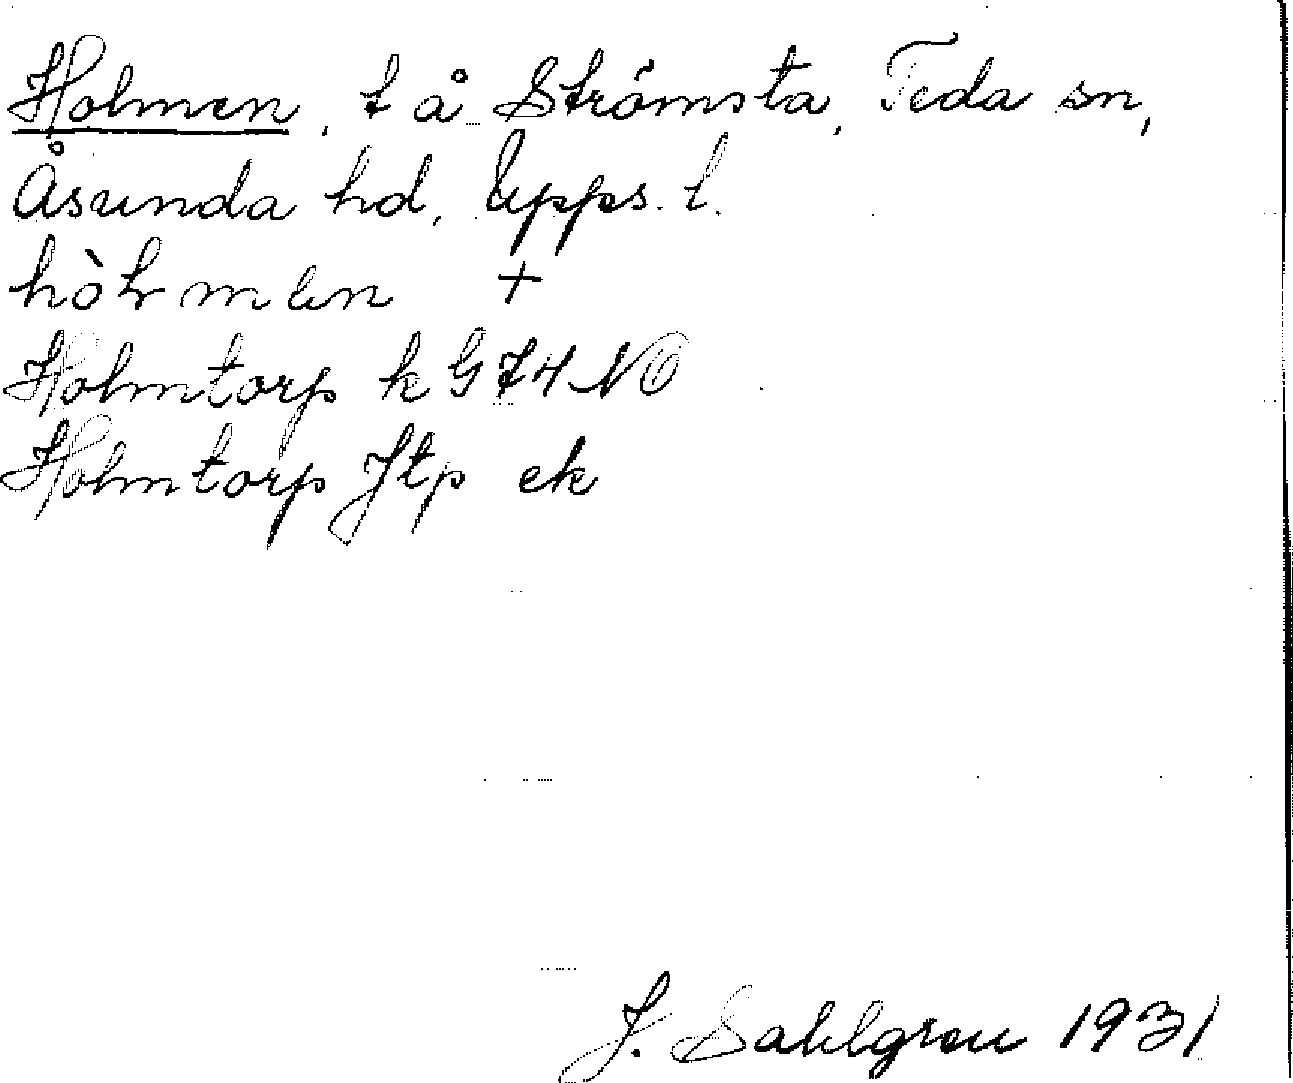 Holmen, t å Strömsta, Teda sn,
Åsunda hd, Upps. l.
hòlmen +
Holmtorp k G 74 NO
Holmtorp Jtp ek
J. Sahlgren 1931